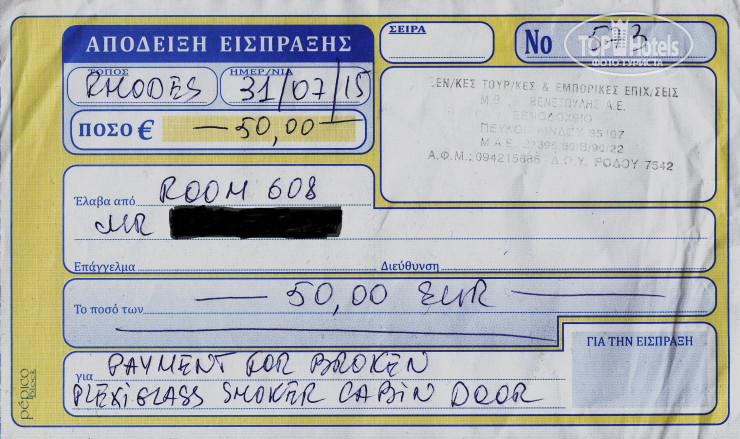 ΑΠΟΔΕΙΞΗ ΕΙΣΠΡΑΞΗΣ
ΣΕΙΡΑ
No 573
TOPHotels
ΦΟΤΟ ТУРИСТА
ΤΟΠΟΣ RHODES
ΗΜΕΡ/ΝΙΑ 31/07/15
ΠΟΣΟ € —50,00—
ΞΕΝ/ΚΕΣ ΤΟΥΡ/ΚΕΣ & ΕΜΠΟΡΙΚΕΣ ΕΠΙΧ/ΣΕΙΣ
ΒΕΝΕΤΟΥΛΗΣ Α.Ε.
ΞΕΝΟΔΟΧΕΙΟ
ΛΙΝΔΟΥ 85107
Μ.Α.Ε.
Α.Φ.Μ.: Δ.Ο.Υ. ΡΟΔΟΥ 7542
Έλαβα από ROOM 608
MR
Επάγγελμα
Διεύθυνση
Το ποσό των — 50,00 EUR —
ΓΙΑ ΤΗΝ ΕΙΣΠΡΑΞΗ
για PAYMENT FOR BROKEN
PLEXIGLASS SMOKER CABIN DOOR
pépico block